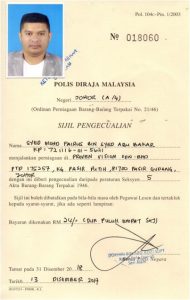 Pol. 104c-Pin. 1/2003
No 018060
POLIS DIRAJA MALAYSIA
NEGERI JOHOR (A/4)
(Ordinan Perniagaan Barang-Barang Terpakai No. 21/46)
SIJIL PENGECUALIAN
SYED MOHD FAIRUS BIN SYED ABU BAKAR
menjalankan perniagaan di PROVEN VISION SDN BHD
PTD 175257, KG PASIR PUTIH, 81700 PASIR GUDANG,
JOHOR
adalah diberi pengecualian daripada peraturan Seksyen 5
Akta Barang-Barang Terpakai 1946.
Sijil ini boleh dibatalkan pada bila-bila masa oleh Pegawai Lesen dan tertakluk
kepada syarat-syarat, jika ada seperti lampiran.
Bayaran dikenakan RM 24/- (DUA PULUH EMPAT SHJ)
Tamat pada 31 Disember 20 18
13 DISEMBER 2017